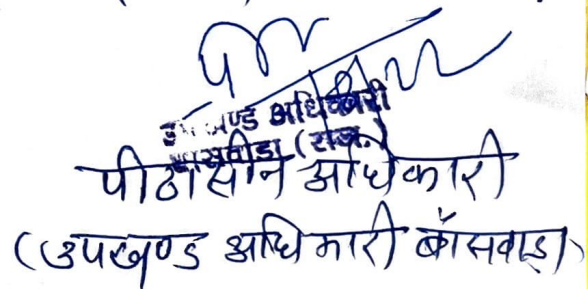 उपखण्ड अधिकारी
बांसवाड़ा (राज.)
पीठासीन अधिकारी
(उपखण्ड अधिकारी बाँसवाड़ा)